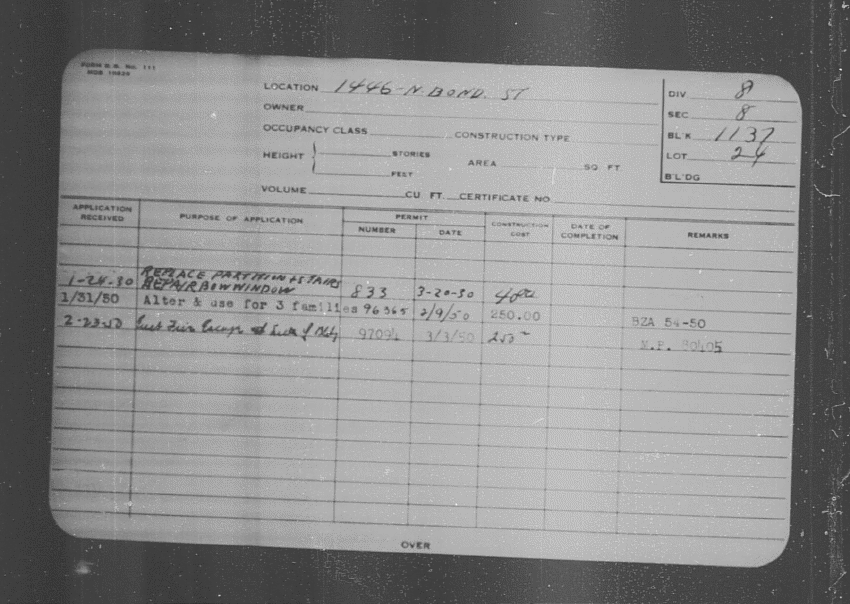 FORM B.B. No. 111
LOCATION 1446-N. BOND. ST
DIV 8
OWNER
SEC 8
OCCUPANCY CLASS CONSTRUCTION TYPE
BL'K 1137
HEIGHT } STORIES AREA SQ FT
LOT 24
FEET
B'L'DG
VOLUME CU FT. CERTIFICATE NO.
APPLICATION RECEIVED PURPOSE OF APPLICATION PERMIT NUMBER DATE CONSTRUCTION COST DATE OF COMPLETION REMARKS
REPLACE PARTITION & STAIRS
1-24-30 REPAIR BOW WINDOW 833 3-20-30
1/31/50 Alter & use for 3 families 96365 2/9/50 250.00 BZA 54-50
2-23-50 Fire Escape of Bldg 97094 3/3/50 M.P. 80405
OVER